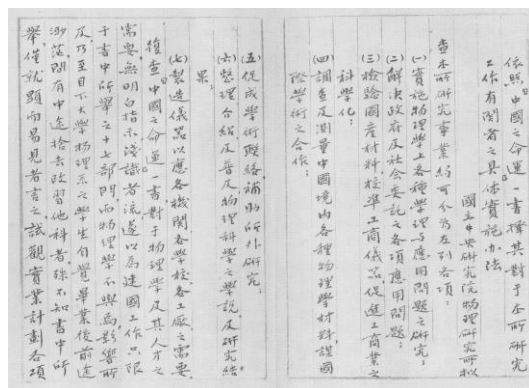 依照「中國之命運」一書擇其對于本所研究
工作有關者之具体實施办法
國立中央研究院物理研究所拟
查本所研究事業約可分為左列各項：
(一)實施物理學上各種學理与應用問題之研究；
(二)解決政府及社會委託之各項應用問題；
(三)檢驗國產材料，校準工商儀器，促進工商業之
科學化；
(四)調查及測量中國境內各種物理學材料，謀國
際學術之合作；
(五)促成學術聯絡，補助所外研究；
(六)整理介紹及普及物理科學之學說及研究結
果；
(七)製造儀器以應各機關各學校各工廠之需要。
復查「中國之命運」一書對于物理學及其人才之
需要無明白指示，淺識者流遂以為建國工作只限
于書中所舉之十七部門而物理學不與焉，影響所
及，乃至目下大學物理系之學生自覺畢業後前途
渺茫，間有中途捨去改習他科者，殊不知書中所
舉僅就顯而易見者言之，試觀實業計劃各項